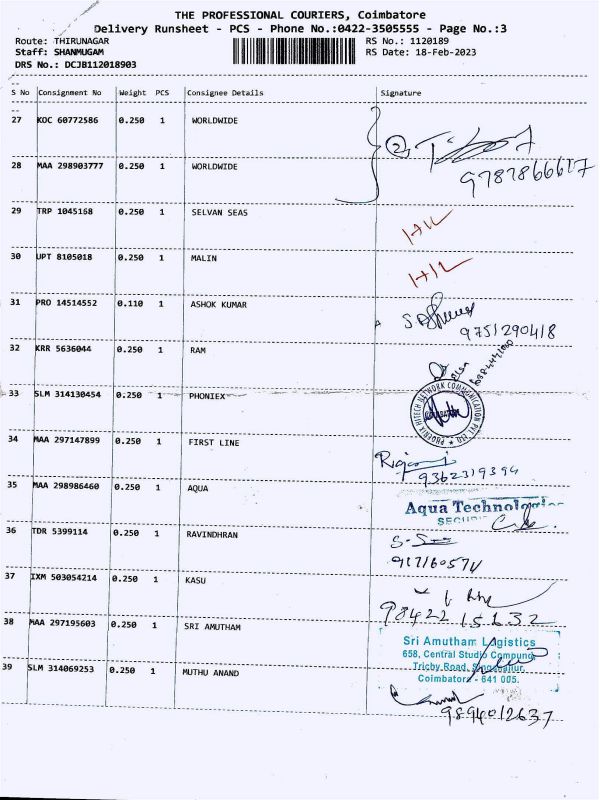 THE PROFESSIONAL COURIERS, Coimbatore
Delivery Runsheet - PCS - Phone No.:0422-3505555 - Page No.:3
Route: THIRUNAGAR RS No.: 1120189
Staff: SHANMUGAM RS Date: 18-Feb-2023
DRS No.: DCJB112018903
S No Consignment No Weight PCS Consignee Details Signature
27 KOC 60772586 0.250 1 WORLDWIDE
2
28 MAA 298903777 0.250 1 WORLDWIDE
9787866617
29 TRP 1045168 0.250 1 SELVAN SEAS
30 UPT 8105018 0.250 1 MALIN
31 PRO 14514552 0.110 1 ASHOK KUMAR
9751290418
32 KRR 5636044 0.250 1 RAM
33 SLM 314130454 0.250 1 PHONIEX
PHOENIX HITECH NETWORK COMMUNICATION PVT LTD
34 MAA 297147899 0.250 1 FIRST LINE
9362319394
35 MAA 298986460 0.250 1 AQUA
Aqua Technologies
36 TDR 5399114 0.250 1 RAVINDHRAN
37 IXM 503054214 0.250 1 KASU
38 MAA 297195603 0.250 1 SRI AMUTHAM
Sri Amutham Logistics
658, Central Studio Compound
Trichy Road, Singanallur,
Coimbatore - 641 005.
39 SLM 314069253 0.250 1 MUTHU ANAND
9894012637